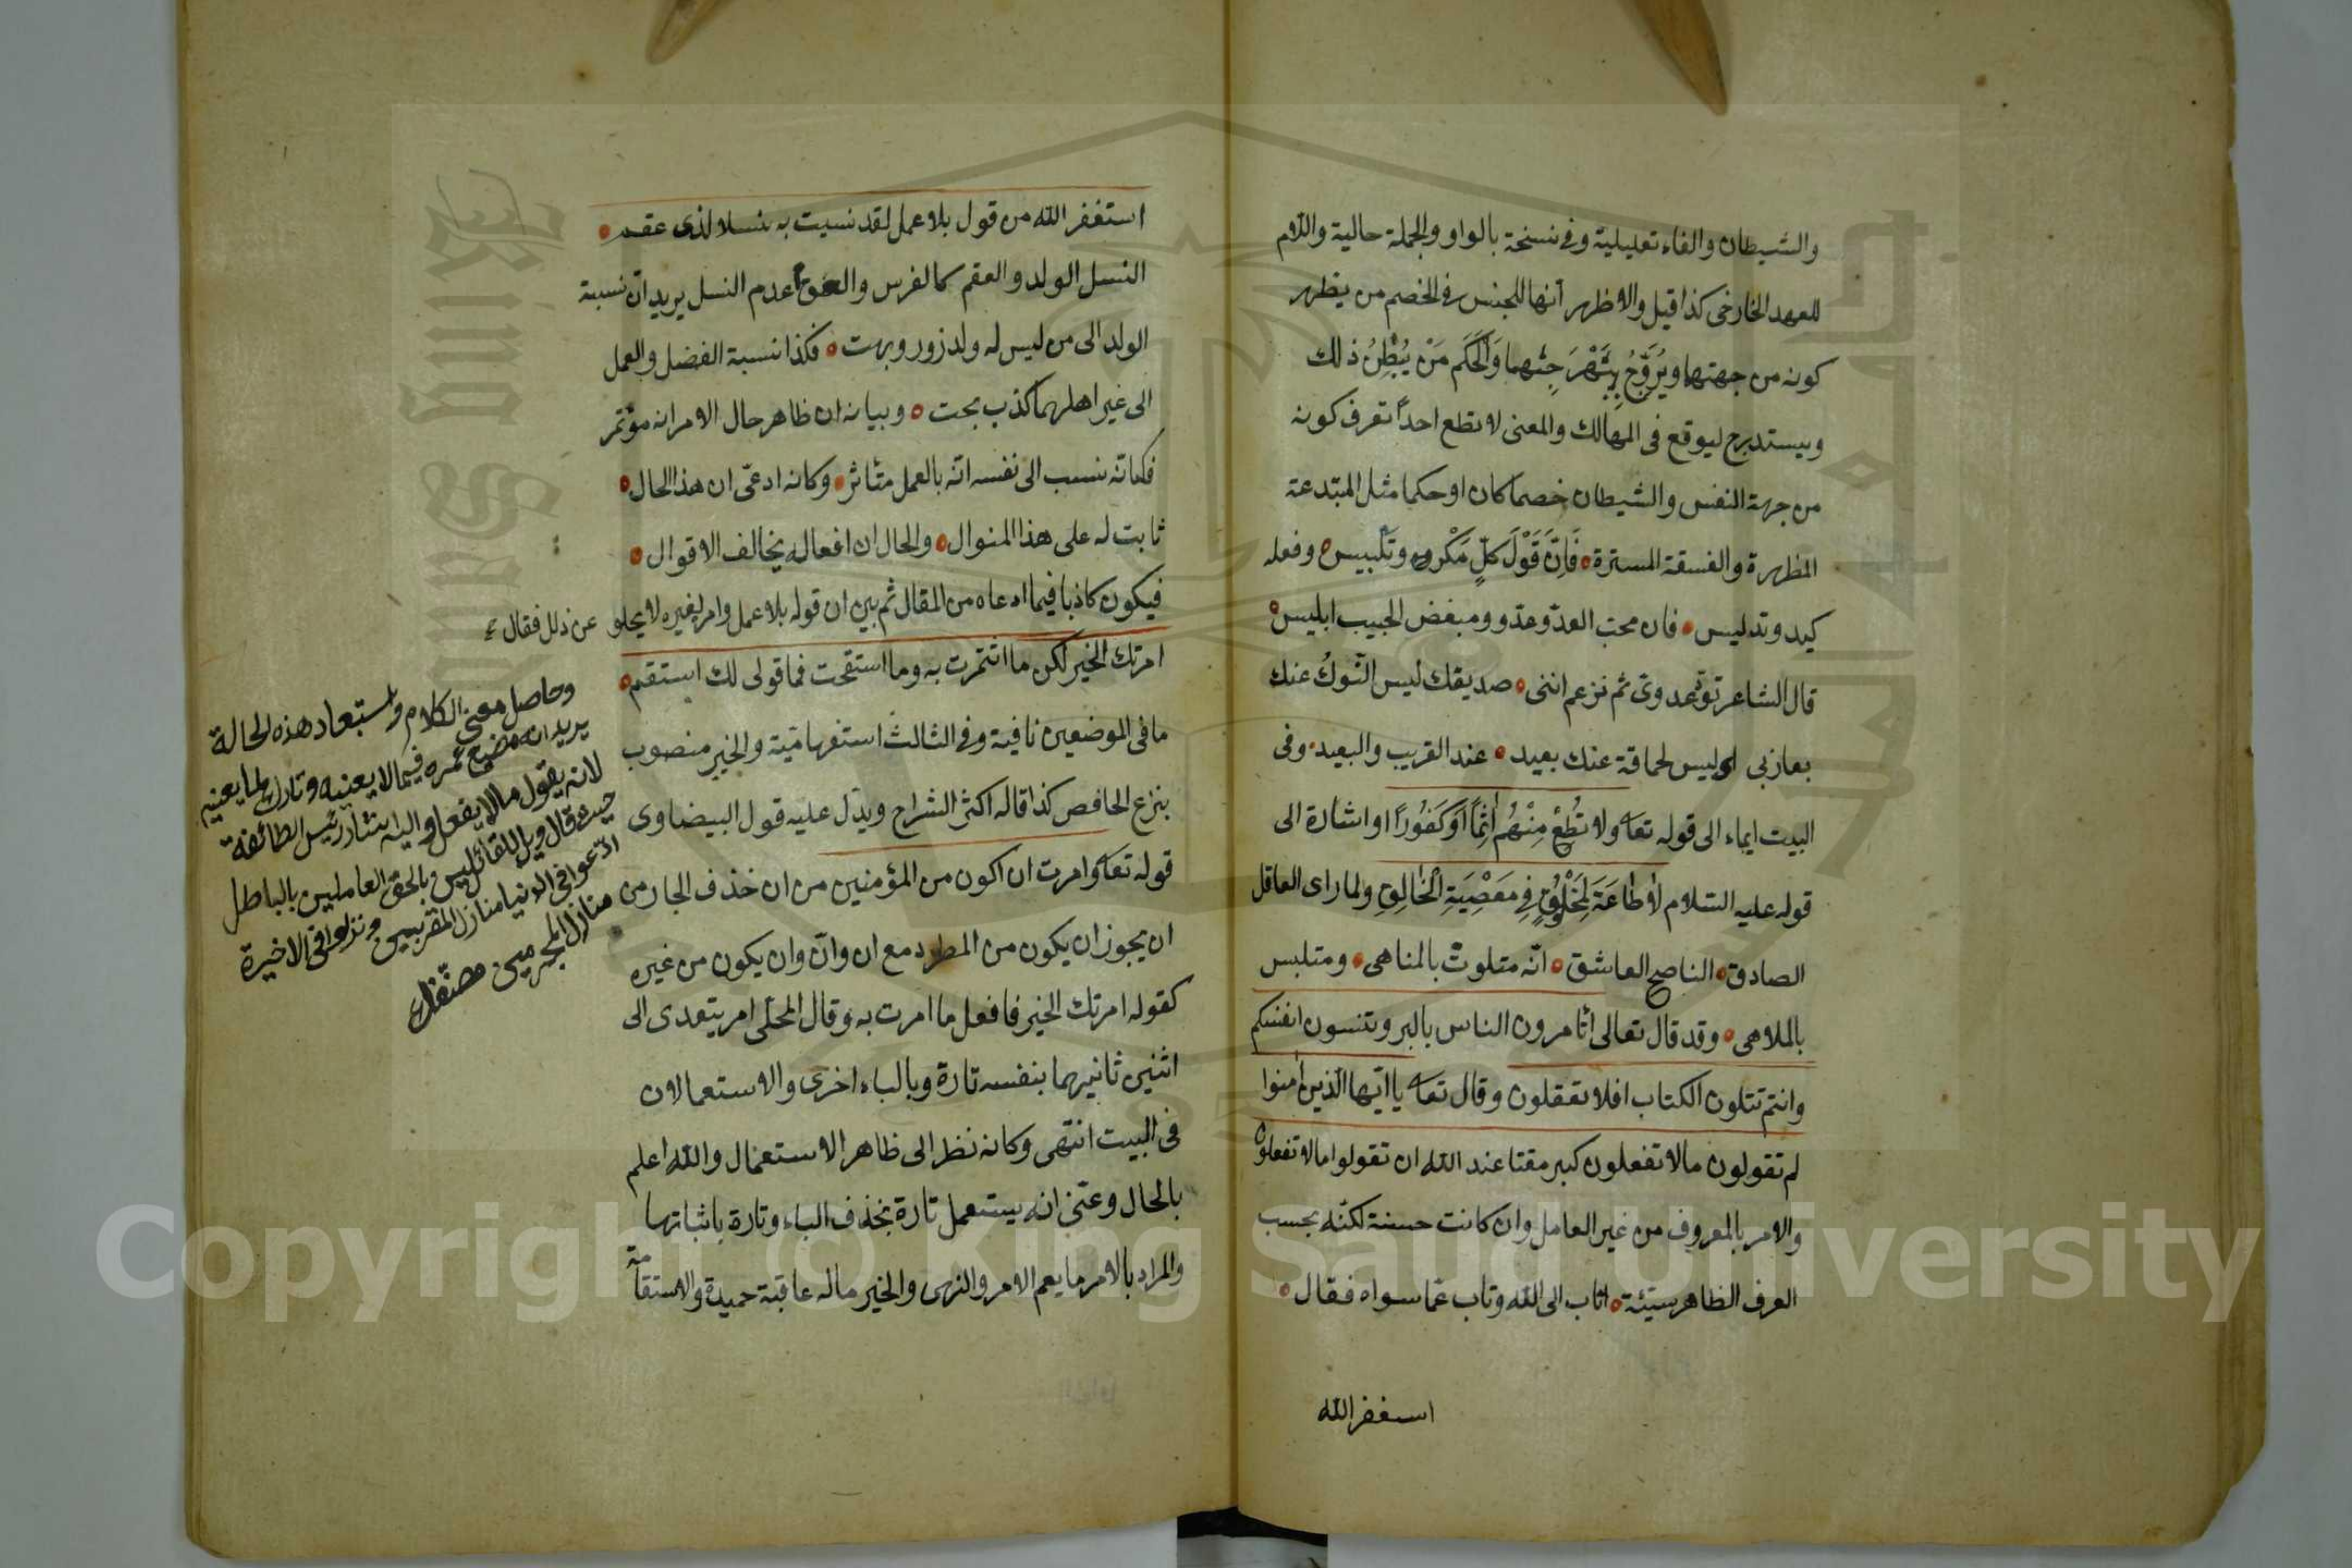 والشيطان والفاء تعليلية وفى نسخة بالواو والجملة حالية واللام
للعهد الخارجى كذا قيل والاظهر أنها للجنس فى الخصم من يظهر
كونه من جهتها ويُرَوِّجُ والحَكَم مَنْ يُبْطِنُ ذلك
ويستدرج ليوقع فى المهالك والمعنى لا تطع احدًا تعرف كونه
من جهة النفس والشيطان خصما كان او حكما مثل المبتدعة
المظهرة والفسقة المسترة فَاِنَّ قَوْلَ كلٍّ مَكْر وتَلْبيس وفعله
كيد وتدليس فان محب العدو عدو ومبغض الحبيب ابليس
قال الشاعر تودّ عدوى ثم تزعم اننى صديقك ليس النَّوكُ عنك
بعازبى اى ليس الحماقة عنك بعيد عند القريب والبعيد وفى
البيت ايماء الى قوله تعا ولا تُطِعْ مِنْهُم اٰثِمًا اَوْ كَفُورًا او اشارة الى
قوله عليه السلام لَاطَاعَةَ لِمَخْلُوقٍ فِى مَعْصِيَةِ الْخَالِقِ ولما راى العاقل
الصادق الناصح العاشق انّه متلوث بالمناهى ومتلبس
بالملاهى وقد قال تعالى أتامرون الناس بالبر وتنسون انفسكم
وانتم تتلون الكتاب افلا تعقلون وقال تعا يا ايّها الذين اٰمنوا
لم تقولون مالا تفعلون كبر مقتا عند الله ان تقولوا مالا تفعلون
والامر بالمعروف من غير العامل وان كانت حسنة لكنّه بحسب
العرف الظاهر سيّئة اناب الى الله وتاب عمّا سواه فقال
استغفر الله
استغفر الله من قول بلا عمل لقد نسبت به نسلا لذى عقم
النسل الولد والعقم كالفرس عدم النسل يريد انّ نسبة
الولد الى من ليس له ولد زور وبهت فكذا نسبة الفضل والعمل
الى غير اهلهما كذب بحت وبيانه ان ظاهر حال الامر انه مؤتمر
فكانّه ينسب الى نفسه انّه بالعمل متأثر وكانه ادعى ان هذا الحال
ثابت له على هذا المنوال والحال ان افعاله يخالف الاقوال
فيكون كاذبا فيما ادعاه من المقال ثم بين ان قوله بلا عمل وامر لغيره لا يخلو عن ذلك فقال
امرتك الخير لكن ما ائتمرت به وما استقمت فما قولى لك استقم
ما فى الموضعين نافية وفى الثالث استفهامية والخير منصوب
بنزع الخافض كذا قاله اكثر الشراح ويدل عليه قول البيضاوى
قوله تعا وامرت ان اكون من المؤمنين من ان حذف الجار من
ان يجوز ان يكون من المطرد مع ان وانّ وان يكون من غيره
كقوله امرتك الخير فافعل ما امرت به وقال المحلى امر يتعدى الى
اثنين ثانيهما بنفسه تارة وبالباء اخرى والاستعمالان
فى البيت انتهى وكانه نظر الى ظاهر الاستعمال والله اعلم
بالحال وعنى انه يستعمل تارة بحذف الباء وتارة باثباتها
والمراد بالامر ما يعم الامر والنهى والخير ماله عاقبة حميدة والاستقامة
وحاصل معنى الكلام واستبعاد هذه الحالة
يريد ان مضيع عمره فيما لا يعنيه وتارك لما يعنيه
لانه يقول مالا يفعل واليه اشار رئيس الطائفة
حيث قال ويل للقائلين بالحق العاملين بالباطل
ادّعوا فى الدنيا منازل المقربين ونزلوا فى الاخيرة
منازل المجرمين
Copyright © King Saud University